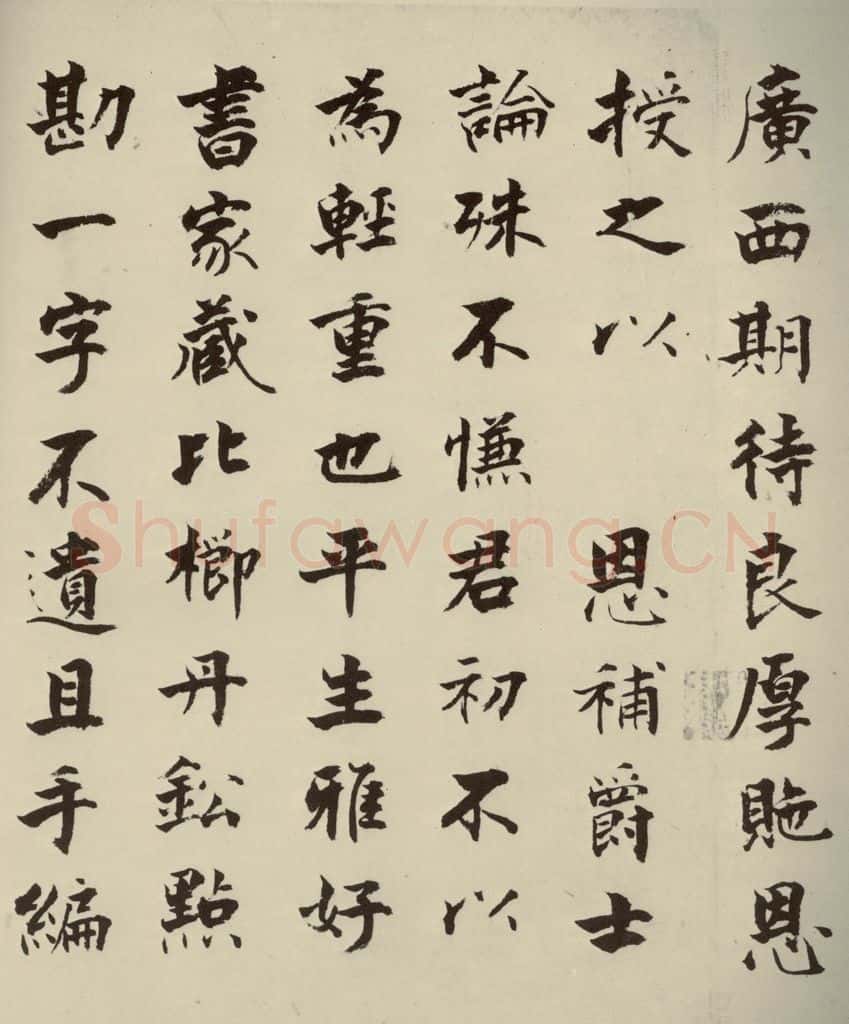 廣西期待良厚貤恩
授之以恩補爵士
論殊不慊君初不以
為輕重也平生雅好
書家藏比櫛丹鈆點
勘一字不遺且手編
Shufawang.CN